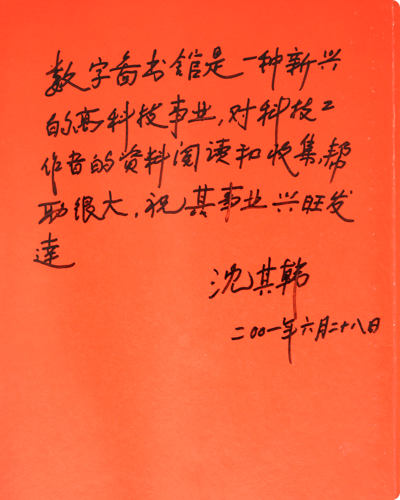 数字图书馆是一种新兴
的高科技事业，对科技工
作者的资料阅读和收集，帮
助很大，祝其事业兴旺发
达
沈其韩
二〇〇一年六月二十八日